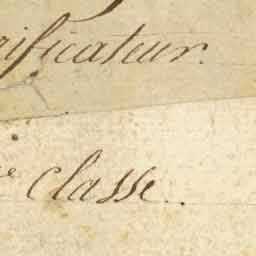 rificateur.
e classe.